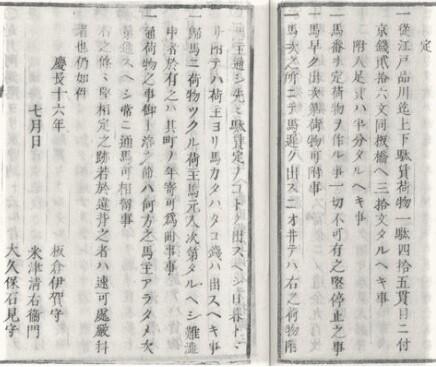 定
一從江戸品川迄上下駄賃荷物一駄四拾五貫目ニ付
京錢貳拾六文同板橋ヘ三拾文タルヘキ事
附人足賃ハ半分タルヘキ事
一馬番ヲ定荷物ヲ作ル事一切不可有之堅停止之事
一馬早ク出次第荷物可附事
一馬次之所ニテ馬遲ク出スニオ井テハ右之荷物附
馬主通シ先ニ駄賃定ノコトク出スヘシ日暮トニ
リ附テハ荷主ヨリ馬カタハタコ錢ハ出スヘキ事
一歸馬ニ荷物ツクル荷主馬元人次第タルヘシ難澁
申者於有之ハ其町ノ年寄可爲曲事事
一通荷物之事御上洛之節ハ何方之馬主アラタメ次
第通スヘシ常ニ通馬可相留事
右之條々堅相定之跡若於違背之者ハ速可處嚴科
者也仍如件
慶長十六年
七月日
板倉伊賀守
米津清右衞門
大久保石見守